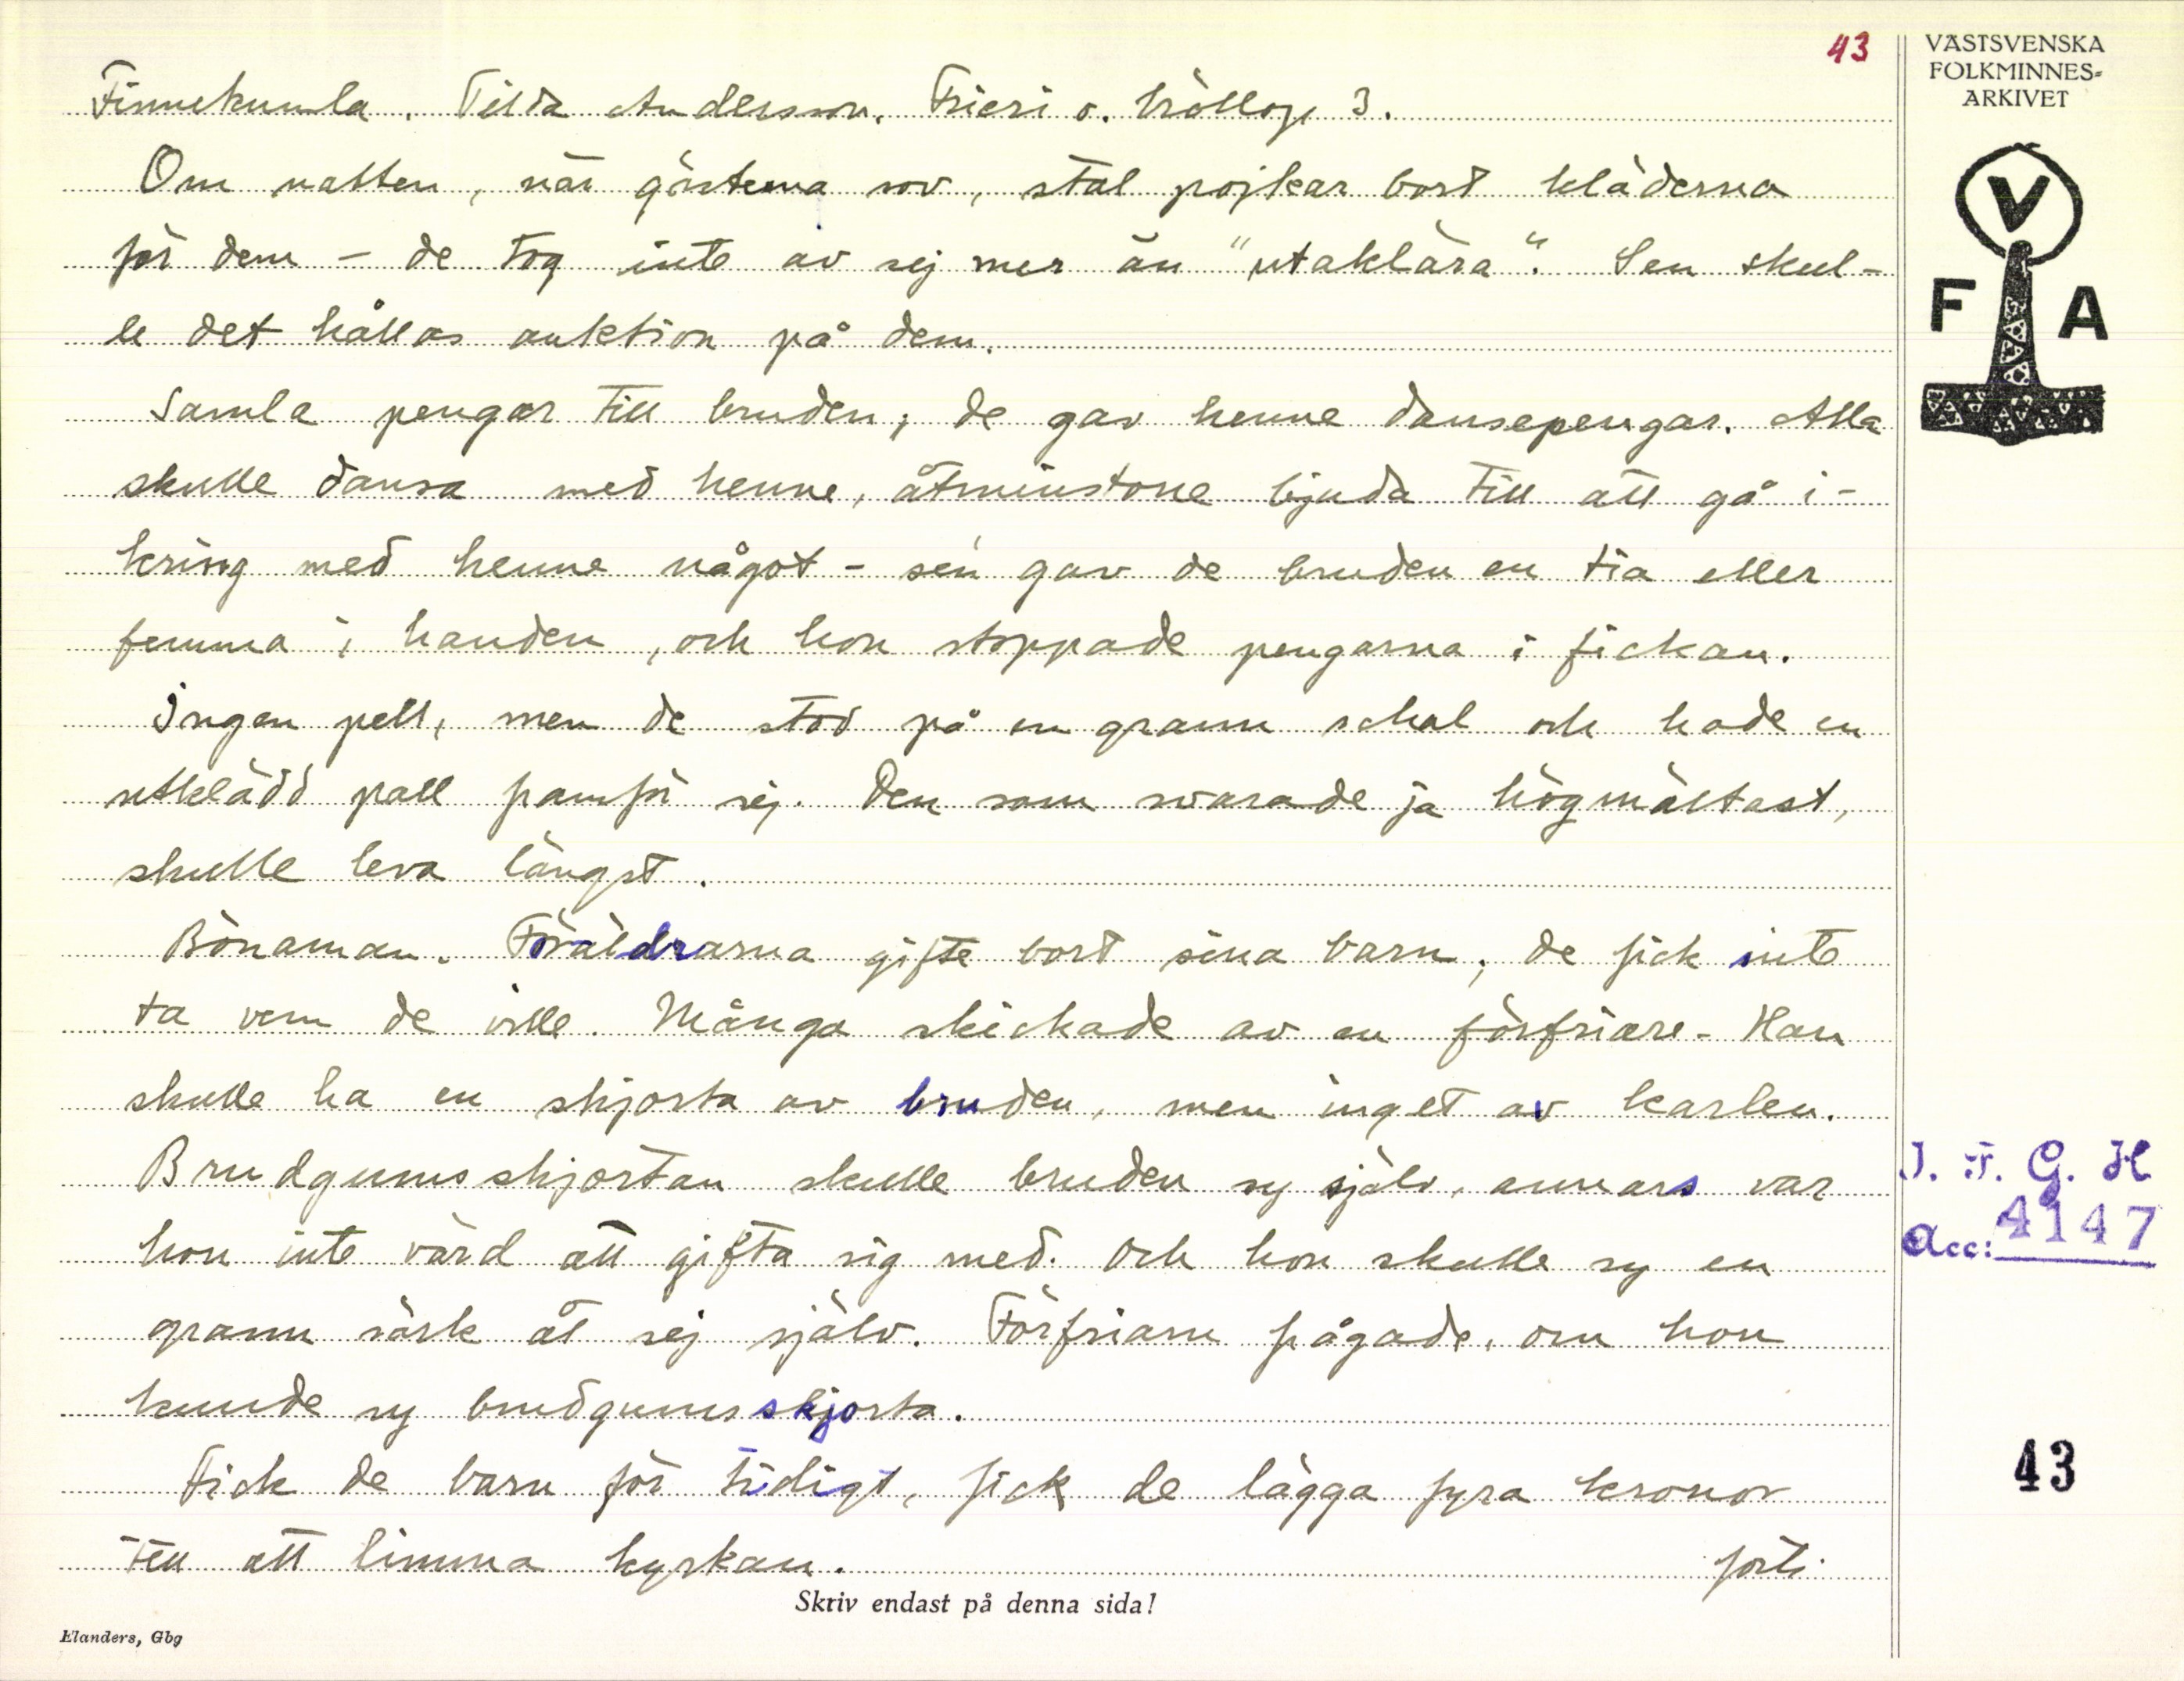 43
VÄSTSVENSKA
FOLKMINNES-
ARKIVET
Finnekumla. Tilda Andersson. Frieri o. bröllop 3.
Om natten, när gästerna sov, stal pojkar bort kläderna
för dem - de tog inte av sej mer än "utaklära". Sen skul-
le det hållas auktion på dem.
Samla pengar till bruden; de gav henne dansepengar. Alla
skulle dansa med henne, åtminstone bjuda till att gå i-
kring med henne något - sen gav de bruden en tia eller
femma i handen, och hon stoppade pengarna i fickan.
Ingen pell, men de stod på en grann schal och hade en
utklädd pall framför sej. Den som svarade ja högmältast,
skulle leva längst.
Bönaman. Föräldrarna gifte bort sina barn, de fick inte
ta vem de ville. Många skickade av en förfriare. Han
skulle ha en skjorta av bruden, men inget av karlen.
Brudgumsskjortan skulle bruden sy själv, annars var
hon inte värd att gifta sig med. Och hon skulle sy en
grann särk åt sej själv. Förfriarn frågade, om hon
kunde sy brudgumsskjorta.
Fick de barn för tidigt, fick de lägga fyra kronor
till att limma kyrkan. forts.
Skriv endast på denna sida!
Elanders, Gbg
V
F A
I. F. G. H
Acc: 4147
43